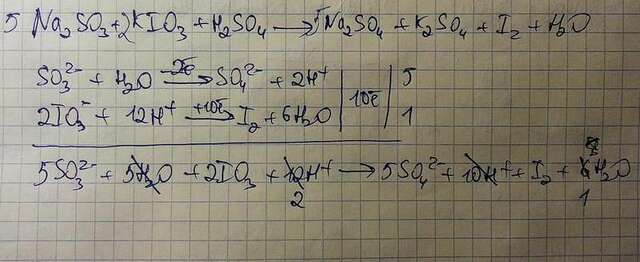 5 Na₂SO₃ + 2KIO₃ + H₂SO₄ → 5Na₂SO₄ + K₂SO₄ + I₂ + H₂O
SO₃²⁻ + H₂O -2ē→ SO₄²⁻ + 2H⁺ | 10ē | 5
2IO₃⁻ + 12H⁺ +10ē→ I₂ + 6H₂O | 1
5SO₃²⁻ + 5H₂O + 2IO₃ + 12H⁺ → 5SO₄²⁻ + 10H⁺ + I₂ + 6H₂O
2 1